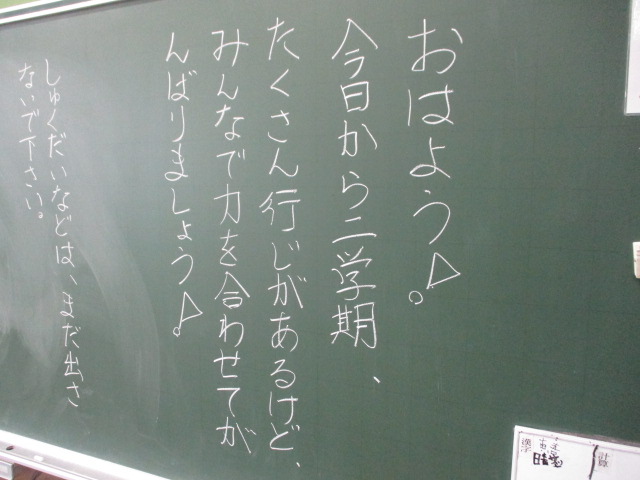 おはよう!
今日から二学期、
たくさん行じがあるけど、
みんなで力を合わせてが
んばりましょう!
しゅくだいなどは、まだ出さ
ないで下さい。
漢字
計算